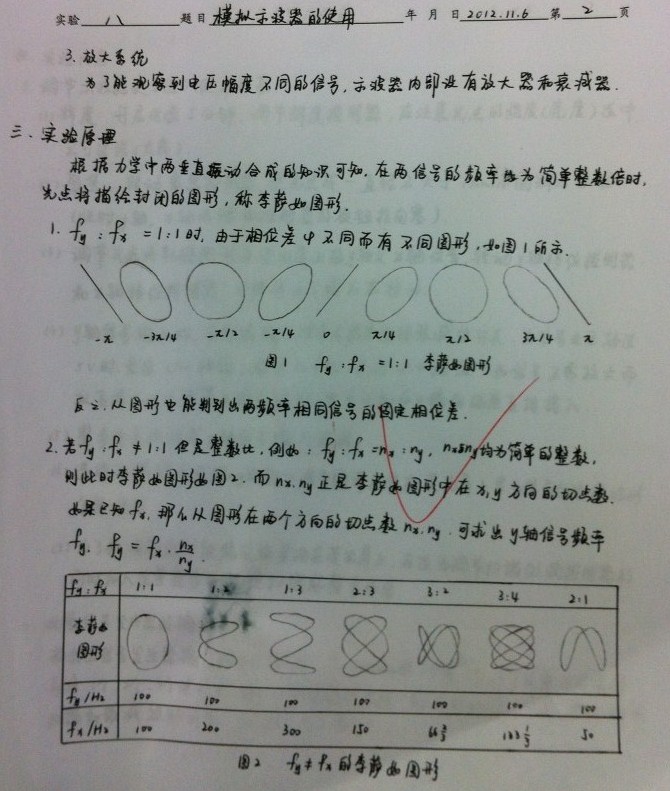 实验 八 题目 模拟示波器的使用 年 月 日 2012.11.6 第 2 页
3. 放大系统
为了能观察到电压幅度不同的信号,示波器内部设有放大器和衰减器.
三、实验原理
根据力学中两垂直振动合成的知识可知,在两信号的频率均为简单整数倍时,
光点将描绘封闭的图形,称李萨如图形.
1. fy : fx = 1:1时,由于相位差φ不同而有不同图形,如图1所示.
-π -3π/4 -π/2 -π/4 0 π/4 π/2 3π/4 π
图1 fy : fx = 1:1 李萨如图形
反之,从图形也能判别出两频率相同信号的固定相位差.
2. 若fy : fx ≠ 1:1 但是整数比,例如: fy : fx = nx : ny, nx和ny均为简单的整数,
则此时李萨如图形如图2. 而nx, ny正是李萨如图形中在x, y方向的切点数.
如果已知fx, 那么从图形在两个方向的切点数nx, ny. 可求出y轴信号频率
fy. fy = fx · nx/ny.
fy : fx 1:1 1:2 1:3 2:3 3:2 3:4 2:1
李萨如
图形
fy/Hz 100 100 100 100 100 100 100
fx/Hz 100 200 300 150 66 2/3 133 1/3 50
图2 fy≠fx的李萨如图形